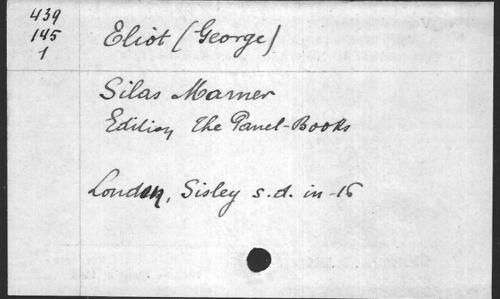 439
145
1
Eliot (George)
Silas Marner
Edition The Panel-Books
London, Sisley s.d. in-16